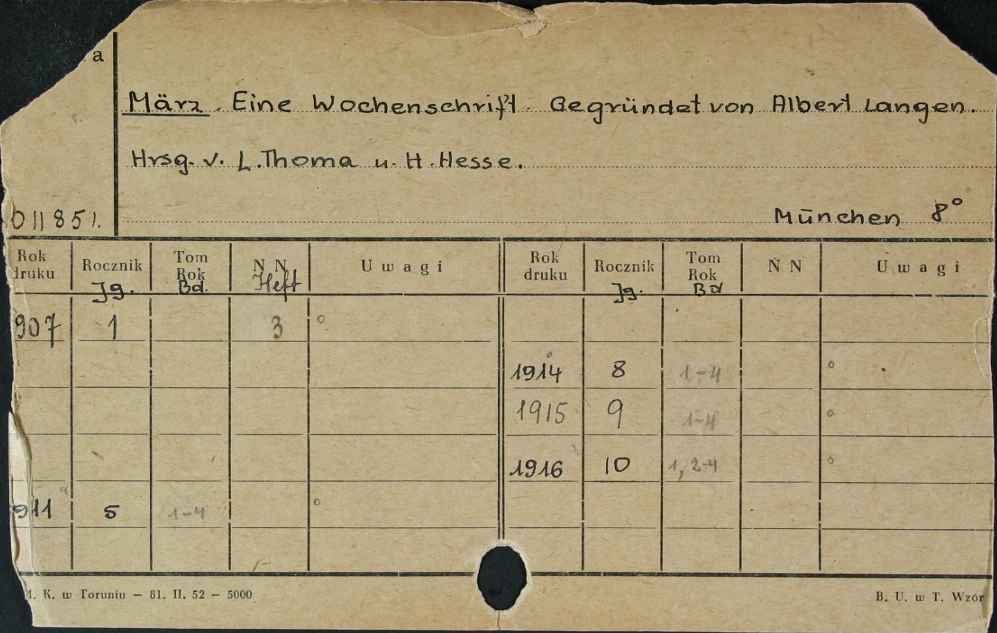 a
März. Eine Wochenschrift. Gegründet von Albert Langen.
Hrsg. v. L. Thoma u. H. Hesse.
011851.
München 8°
Rok druku Rocznik Jg. Tom Rok Bd. N N Heft Uwagi Rok druku Rocznik Jg. Tom Rok Bd N N Uwagi
907 1 3 °
1914 8 1-4 °
1915 9 1-4 °
1916 10 1, 2-4 °
911 5 1-4 °
M. K. w Toruniu — 81. II. 52 — 5000 B. U. w T. Wzór